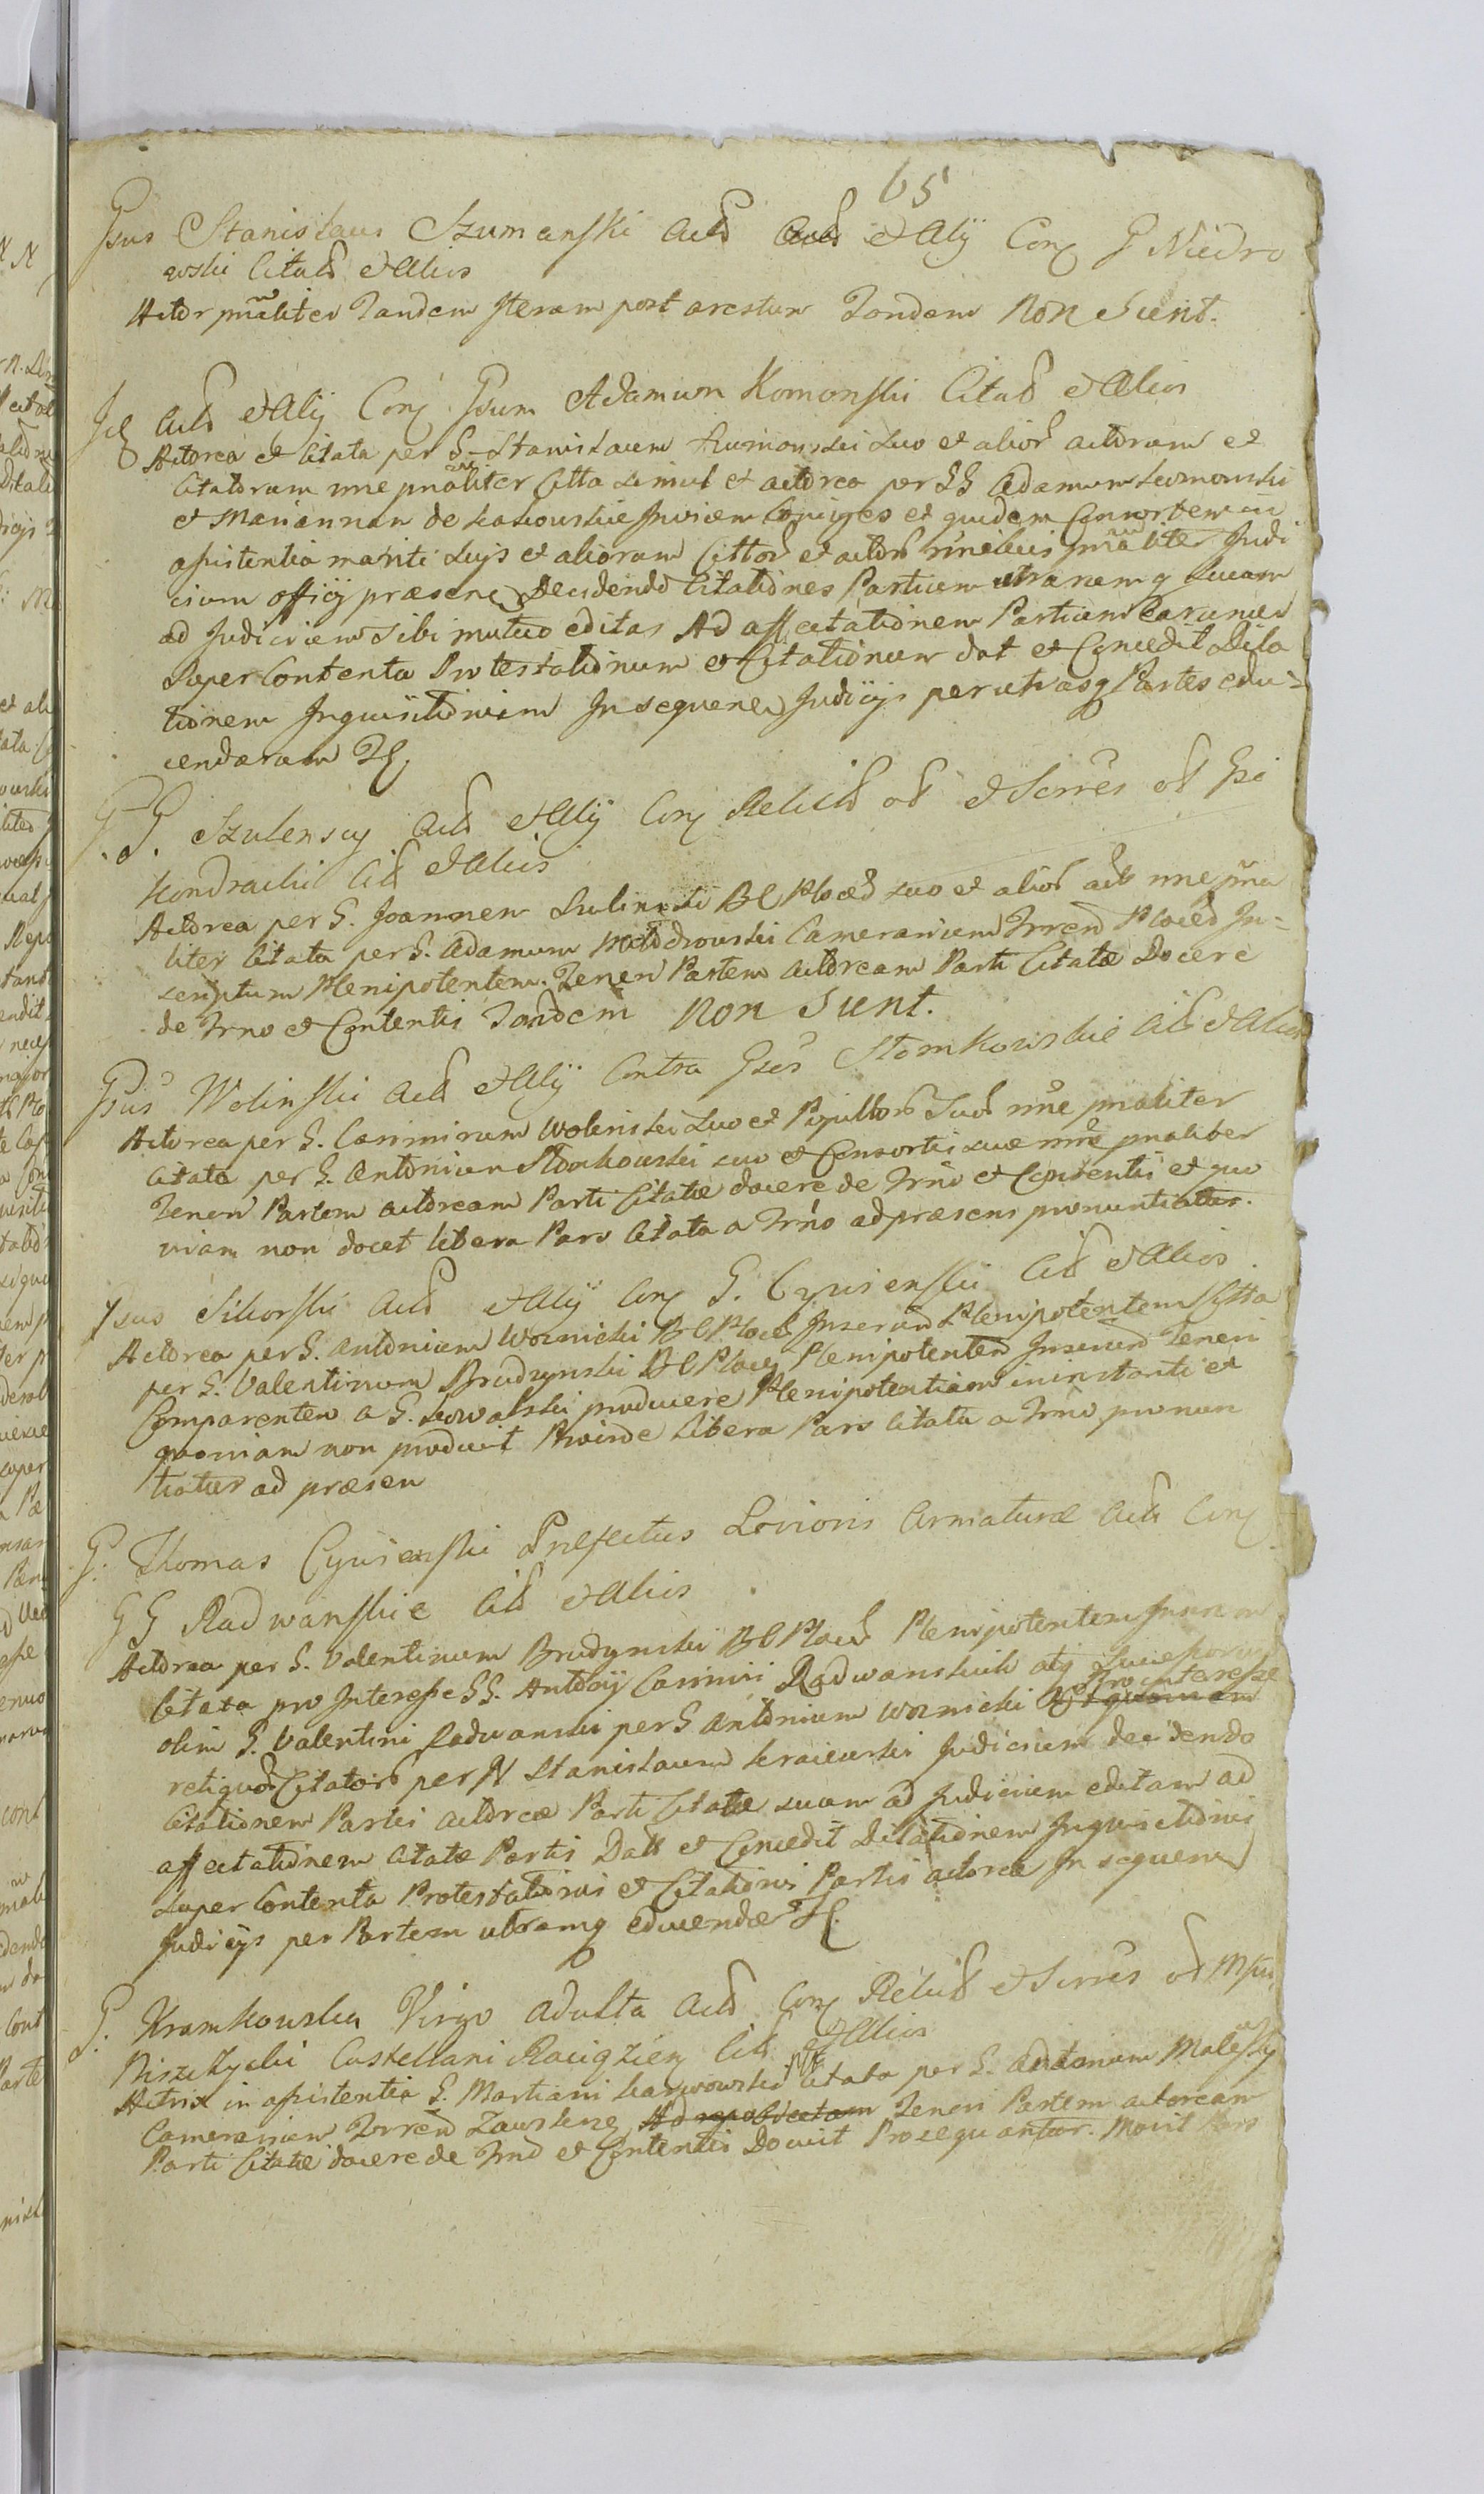 65
Gsus Stanislaus Szumanski Actd et Alij Conq G Niedro
wski Citatd et Alios
Actor pnaliter Tandem Iteram post arestum Tandem Non Sunt.
Actd et Alij Conq Gsum Adamum Komonski Citatd et Alios
Actorea et Citata per G. Stanislaum suo et aliord actorum et
Citatorum nne pnaliter Citta simul et actorea per GG Adamum
et Mariannam de Invicem Coniuges et quidem Consortem in
assistentia mariti suys et aliorum Cittord et actord pnaliter Judi
cium officij praesens Decidendo Citationes Partium utrarumq suam
ad Judicium sibi mutuo editas Ad affectationem Partium earumer
super Contenta Protestationum et Citationum dat et Concedit Dila
tionem Inquisitionum In sequen Judicijs per utrasq Partes edu=
cendarum
G.G. Szulenscy Actd et Alij Conq Relictd od et Serres od Gsi
Kondracki Citd et Alios
Actorea per G. Joannem Sulinski B C Plocd suo et aliord actd nne pna
liter Citata per G. Adamum Camerarium Trren Plocd In=
scriptum Plenipotentem. Teneri Partem Actoream Parti Citatae Docere
de Trno et Contentis Tandem Non Sunt.
Gsus Wolinski Actd et Alij Contra Gsos Slomkowskie Citd et Alios
Actorea per G. Casimirum Wolenski suo et Pupillord suod nne pnaliter
Citata per G. Antonium Slomkowski suo et Consortis suae nne pnaliter
Teneri Partem actoream Parti Citatae docere de Trno et Contentis et quo
niam non docet libera Pars Citata a Trno ad praesens pronuntiatur.
Gsus Sikorski Actd et Alij Conq G. Cywienski Citd et Alios.
Actorea per G. Antonium Woznicki B C Plocd Inserund Plenipotentem Citta
per G. Valentinum Brudzynski B C Plocq Plenipotented Inserund Teneri
Comparentem a G. Kowalski producere Plenipotentiam in instanti et
quoniam non producit Proinde Libera Pars Citata a Trno pronun
tiatur ad praesen
G. Thomas Cywienski Praefectus Levioris Armaturae Actd Conq
GG Radwanskie Citd et Alios
Actorea per G. Valentinum Brudzynski B C Plocd Plenipotentem
Citata pro Interesse GG. Antonij Casimiri Radwanskich atq Successorum
olim G. Valentini Radwanski per G Antonium Woznicki pro interesse
reliquord Citatord per N Stanislaum Kraiewski Judicium decidendo
Citationem Partis actoreae Parti Citatae suam ad Judicium editam ad
affectationem Citatae Partis Datt et Concedit Dilationem Inquisitionis
super Contenta Protestationis et Citationis Partis actorea In sequen
Judicijs per Partem utramq educendae
G. Kramkowska Virgo adulta Actd Conq Relictd et Serres od
Niszczycki Castellani Raciązień Citd et Alios
Actrix in assistentia G. Martiani Karwowski Citata per G. Antonium
Camerarium Trren Zawskrzeq Teneri Partem actoream
Parti Citatae docere de Trno et Contentis Docuit Prosequantur. Movit Pars